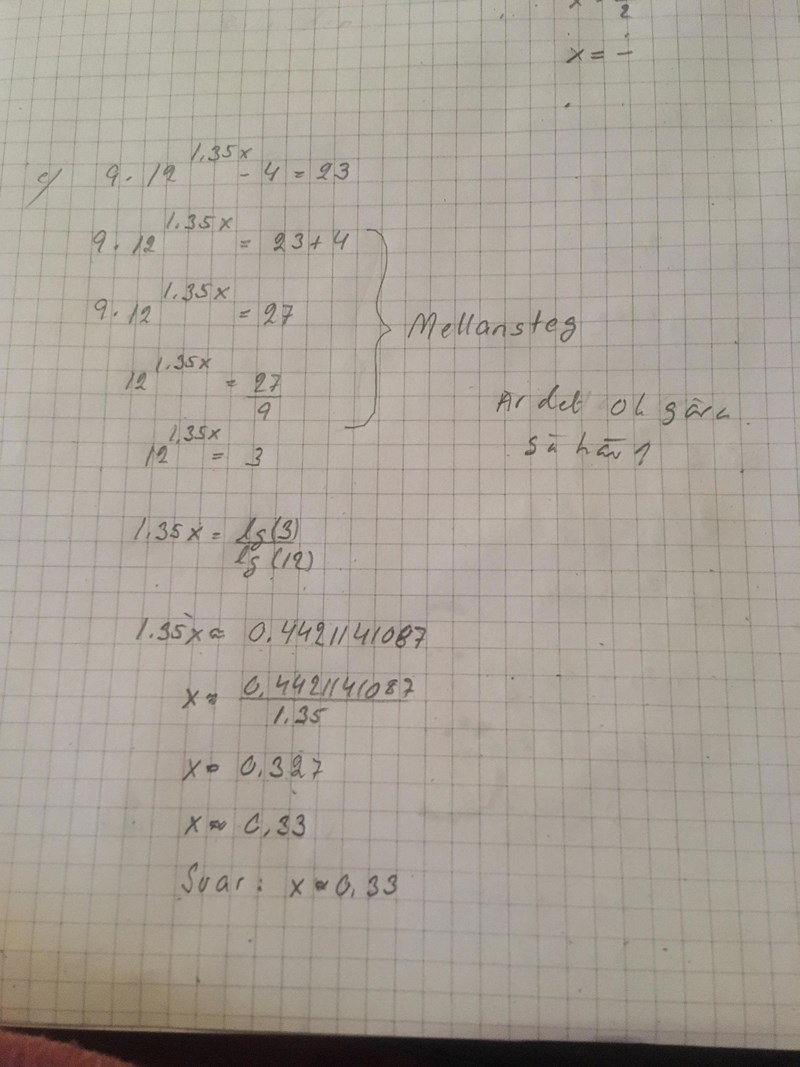 x = —
2
x = —
c) 9 · 12^1.35x - 4 = 23
9 · 12^1.35x = 23 + 4
9 · 12^1.35x = 27
Mellansteg
12^1.35x = 27/9
Är det ok göra
så här?
12^1.35x = 3
1.35x = lg(3)/lg(12)
1.35x ≈ 0.4421141087
x ≈ 0,4421141087/1.35
x ≈ 0,327
x ≈ 0,33
Svar: x ≈ 0,33